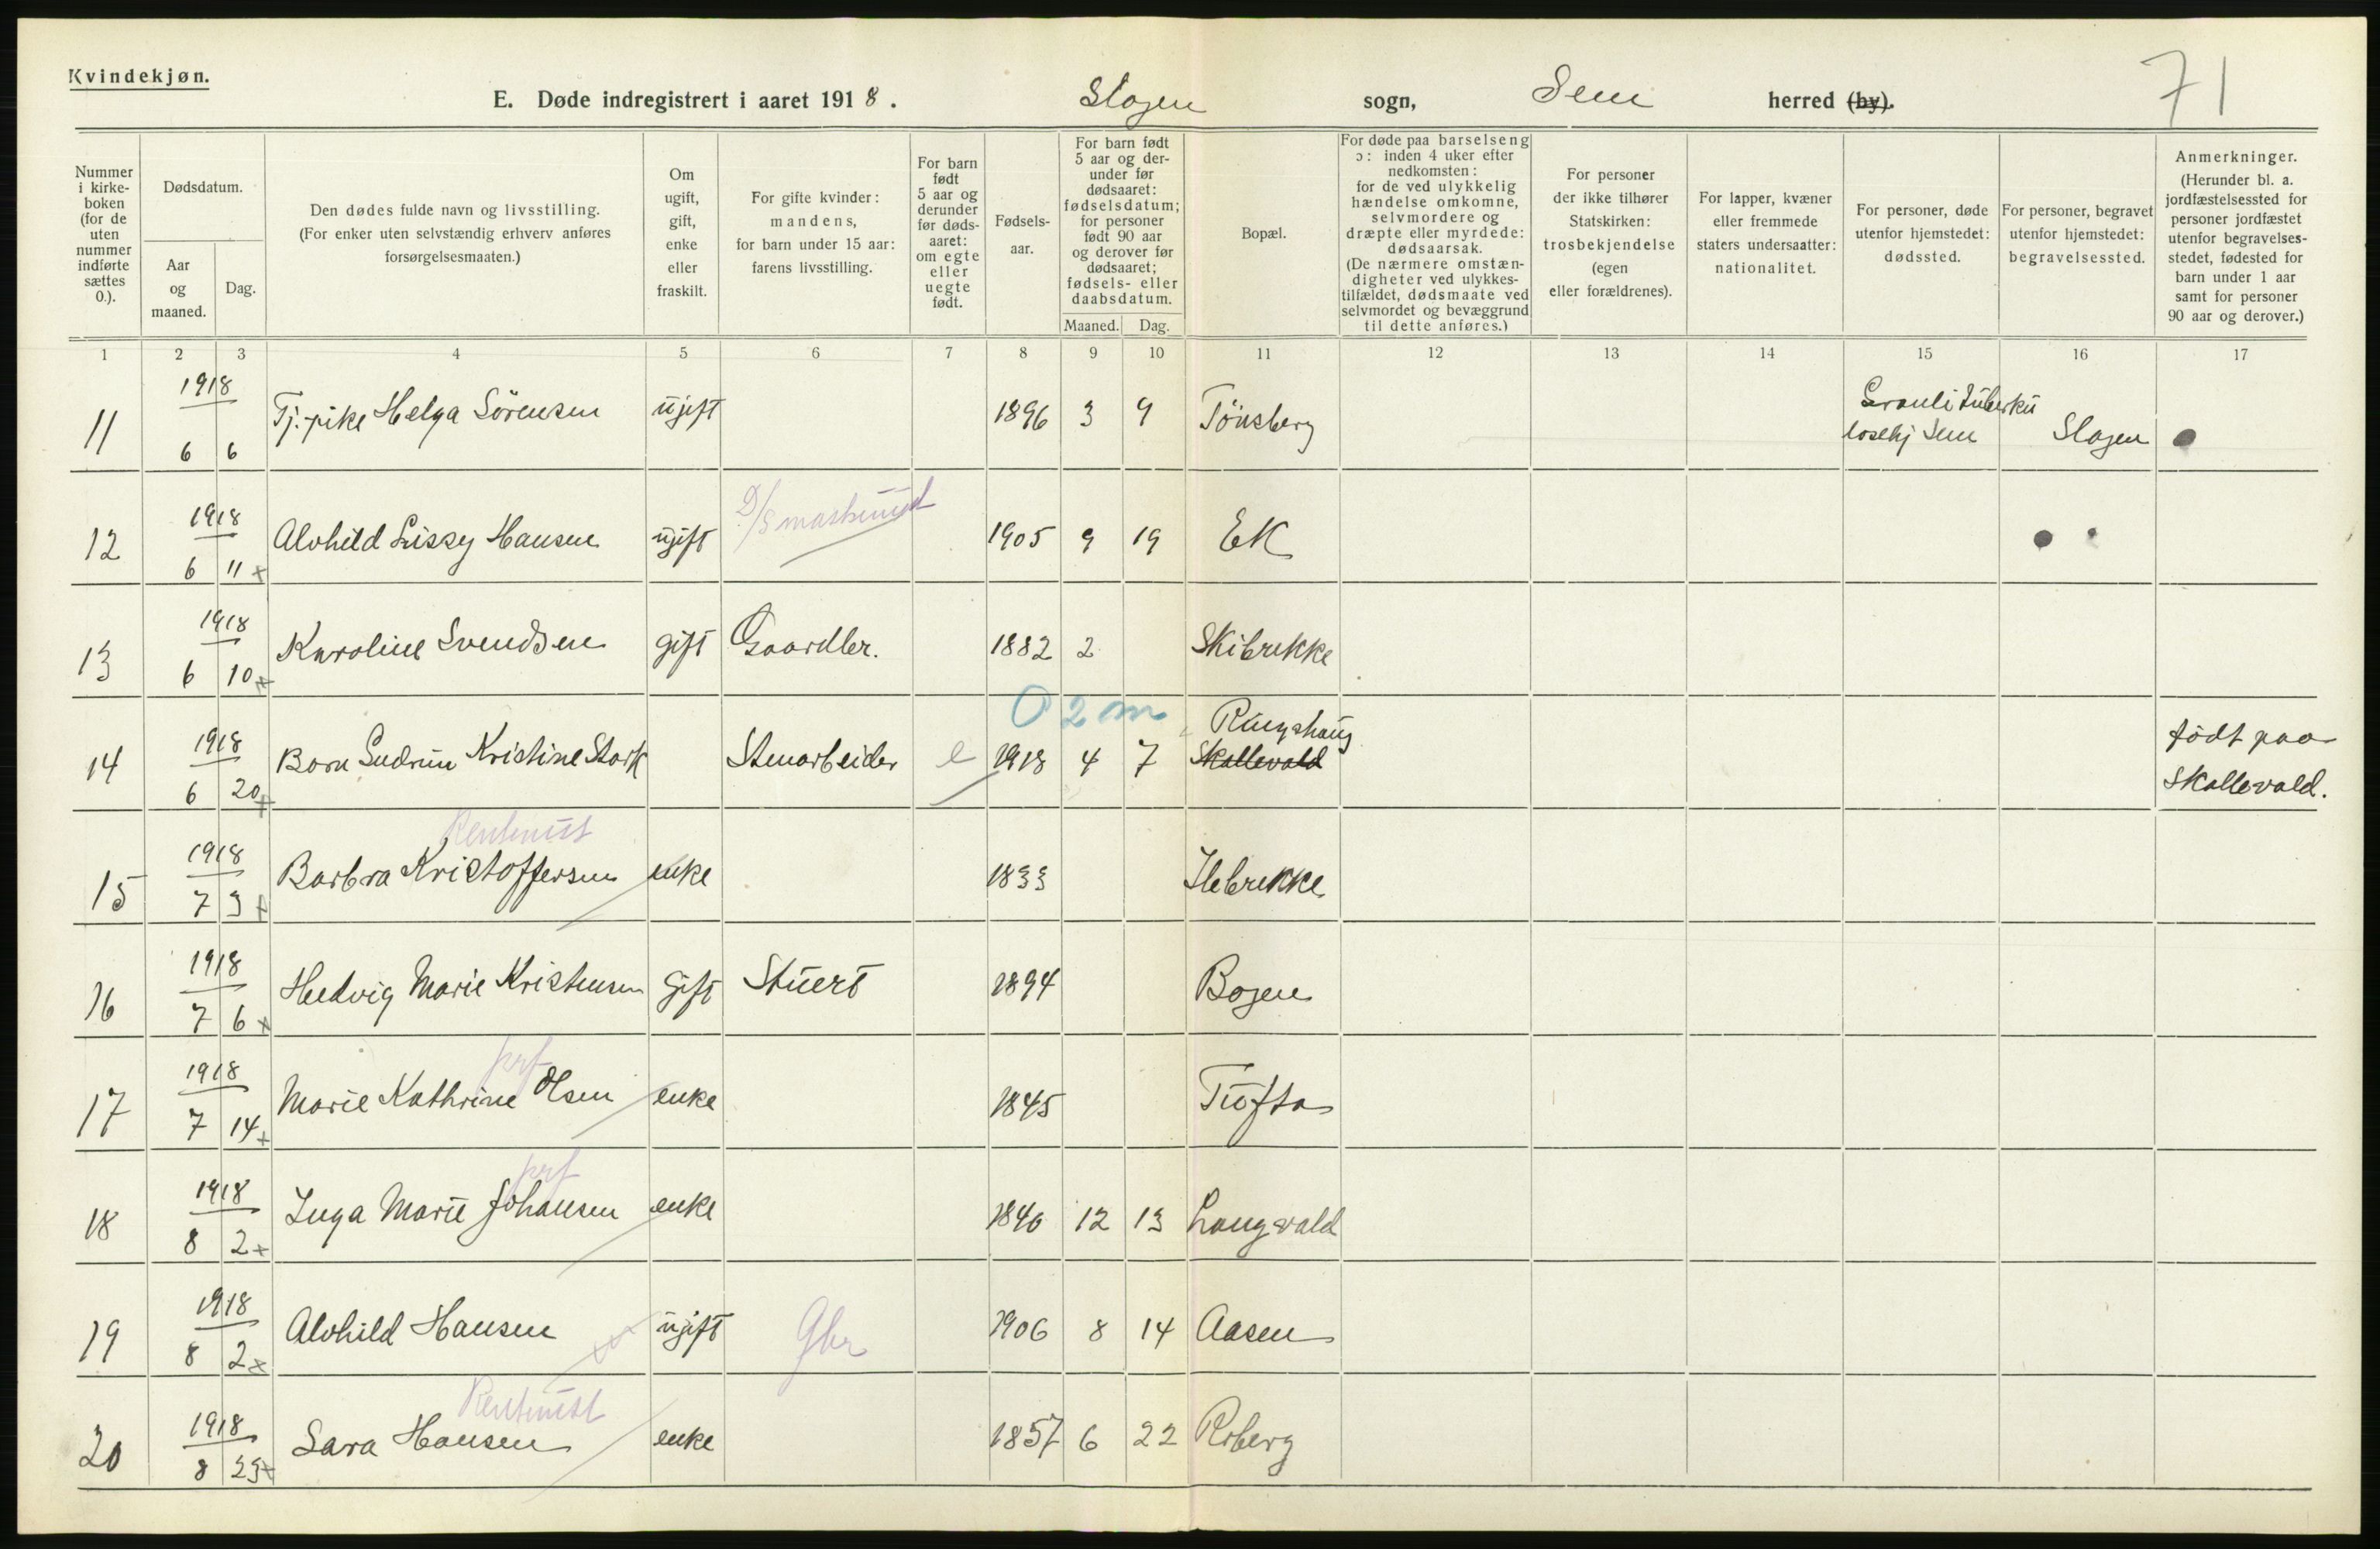 Kvindekjøn.
71
E. Døde indregistrert i aaret 1918. Slagen sogn, Sem herred (by).
Nummer i kirkeboken (for de uten nummer indførte sættes 0.).
Dødsdatum.
Aar og maaned.
Dag.
Den dødes fulde navn og livsstilling.
(For enker uten selvstændig erhverv anføres forsørgelsesmaaten.)
Om ugift, gift, enke eller fraskilt.
For gifte kvinder: mandens, for barn under 15 aar: farens livsstilling.
For barn født 5 aar og derunder før dødsaaret: om egte eller uegte født.
Fødselsaar.
For barn født 5 aar og derunder før dødsaaret: fødselsdatum; for personer født 90 aar og derover før dødsaaret; fødsels- eller daabsdatum.
Maaned. Dag.
Bopæl.
For døde paa barselseng ɔ: inden 4 uker efter nedkomsten: for de ved ulykkelig hændelse omkomne, selvmordere og dræpte eller myrdede: dødsaarsak. (De nærmere omstændigheter ved ulykkestilfældet, dødsmaate ved selvmordet og bevæggrund til dette anføres.)
For personer der ikke tilhører Statskirken: trosbekjendelse (egen eller forældrenes).
For lapper, kvæner eller fremmede staters undersaatter: nationalitet.
For personer, døde utenfor hjemstedet: dødssted.
For personer, begravet utenfor hjemstedet: begravelsessted.
Anmerkninger. (Herunder bl. a. jordfæstelsessted for personer jordfæstet utenfor begravelsesstedet, fødested for barn under 1 aar samt for personer 90 aar og derover.)
1 2 3 4 5 6 7 8 9 10 11 12 13 14 15 16 17
11 1918 6 6 Tj.pike Helga Sörensen ugift 1896 3 9 Tönsberg Grauli tuberkulosehj Sem Slagen
12 1918 6 11 x Alvhild Lissy Hansen ugift D/S maskinist 1905 9 19 Ek
13 1918 6 10 x Karoline Svendsen gift Gaardbr. 1882 2 Skibrekke
O 2 m
14 1918 6 20 x Barn Gudrun Kristine Stark Stenarbeider e 1918 4 7 Ringshaug Skallevald födt paa Skallevald.
Rentenist
15 1918 7 3 x Barbra Kristoffersen enke 1833 Ilebrekke
16 1918 7 6 x Hedvig Marie Kristensen gift Stuert 1894 Bogen
prf
17 1918 7 14 x Marie Kathrine Olsen enke 1845 Tufta
prf
18 1918 8 2 x Inga Marie Johansen enke 1846 12 13 Langvald
19 1918 8 2 x Alvhild Hansen ugift Gbr 1906 8 14 Aasen
Rentenist
20 1918 8 23 x Sara Hansen enke 1857 6 22 Roberg